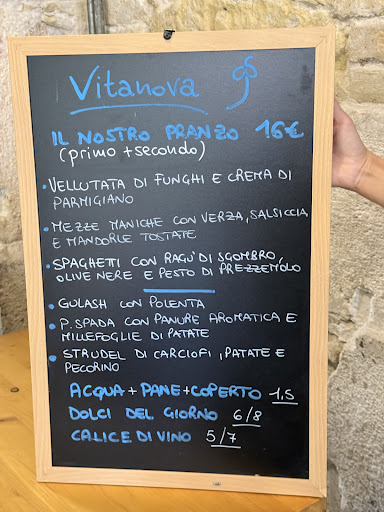 Vitanova
IL NOSTRO PRANZO 16€
(primo + secondo)
• VELLUTATA DI FUNGHI E CREMA DI
PARMIGIANO
• MEZZE MANICHE CON VERZA, SALSICCIA
E MANDORLE TOSTATE
• SPAGHETTI CON RAGU' DI SGOMBRO,
OLIVE NERE E PESTO DI PREZZEMOLO
• GULASH CON POLENTA
• P. SPADA CON PANURE AROMATICA E
MILLEFOGLIE DI PATATE
• STRUDEL DI CARCIOFI, PATATE E
PECORINO
ACQUA + PANE + COPERTO 1,5
DOLCI DEL GIORNO 6/8
CALICE DI VINO 5/7